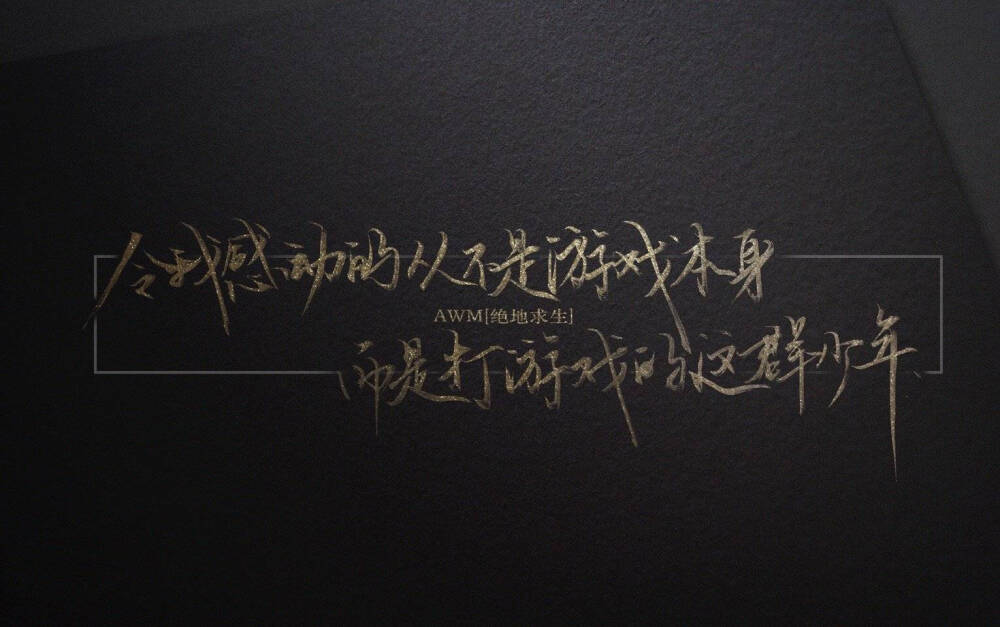 令我感动的从不是游戏本身
AWM[绝地求生]
而是打游戏的这群少年、